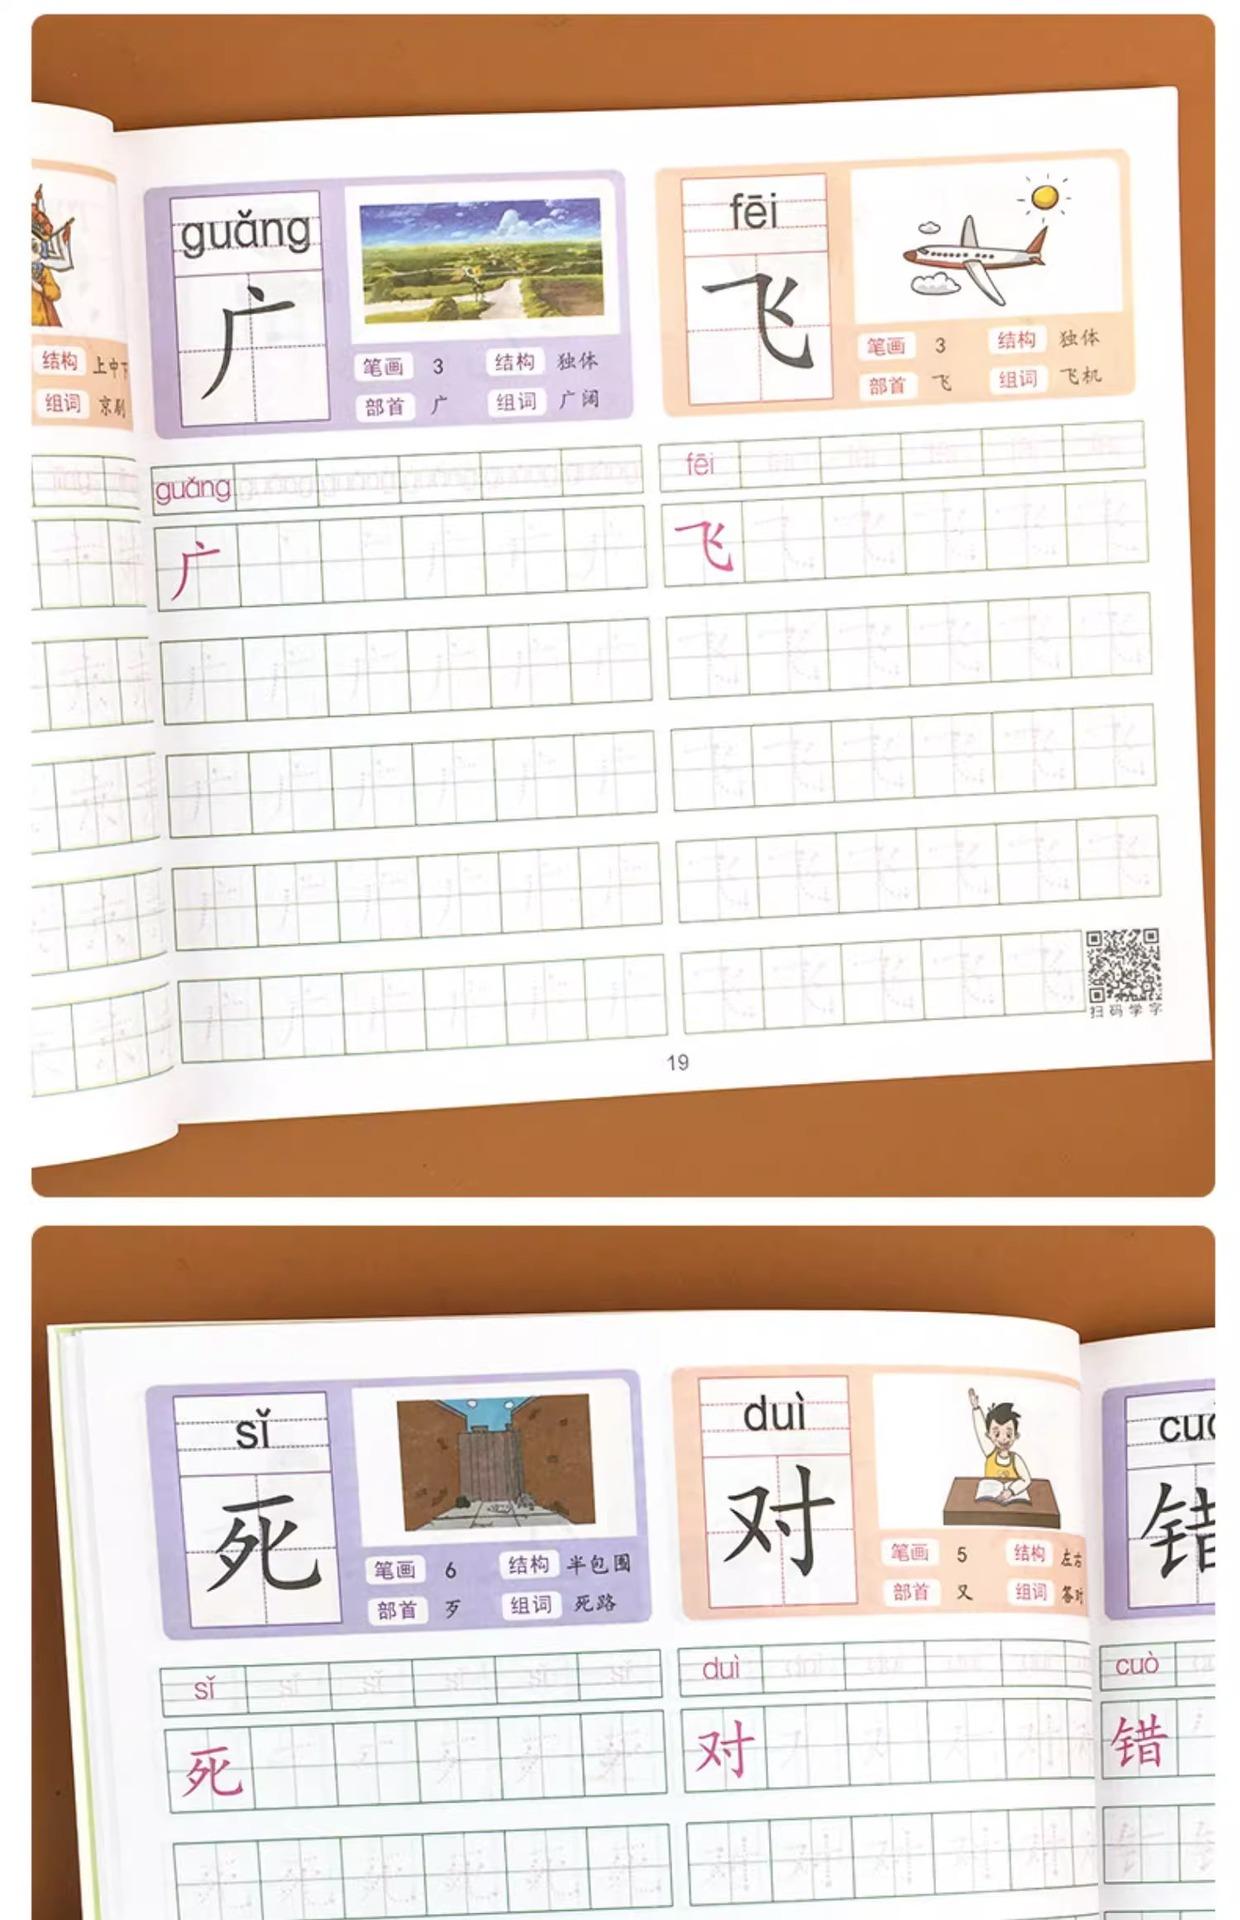 结构 上中下
组词 京剧
guǎng
广
笔画 3 结构 独体
部首 广 组词 广阔
fēi
飞
笔画 3 结构 独体
部首 飞 组词 飞机
guǎng guǎng guǎng guǎng guǎng guǎng
广
fēi fēi fēi fēi fēi fēi
飞
扫码学字
19
sǐ
死
笔画 6 结构 半包围
部首 歹 组词 死路
duì
对
笔画 5 结构 左右
部首 又 组词 答对
cuò
错
sǐ sǐ sǐ sǐ sǐ sǐ
死
duì duì duì duì duì
对
cuò
错